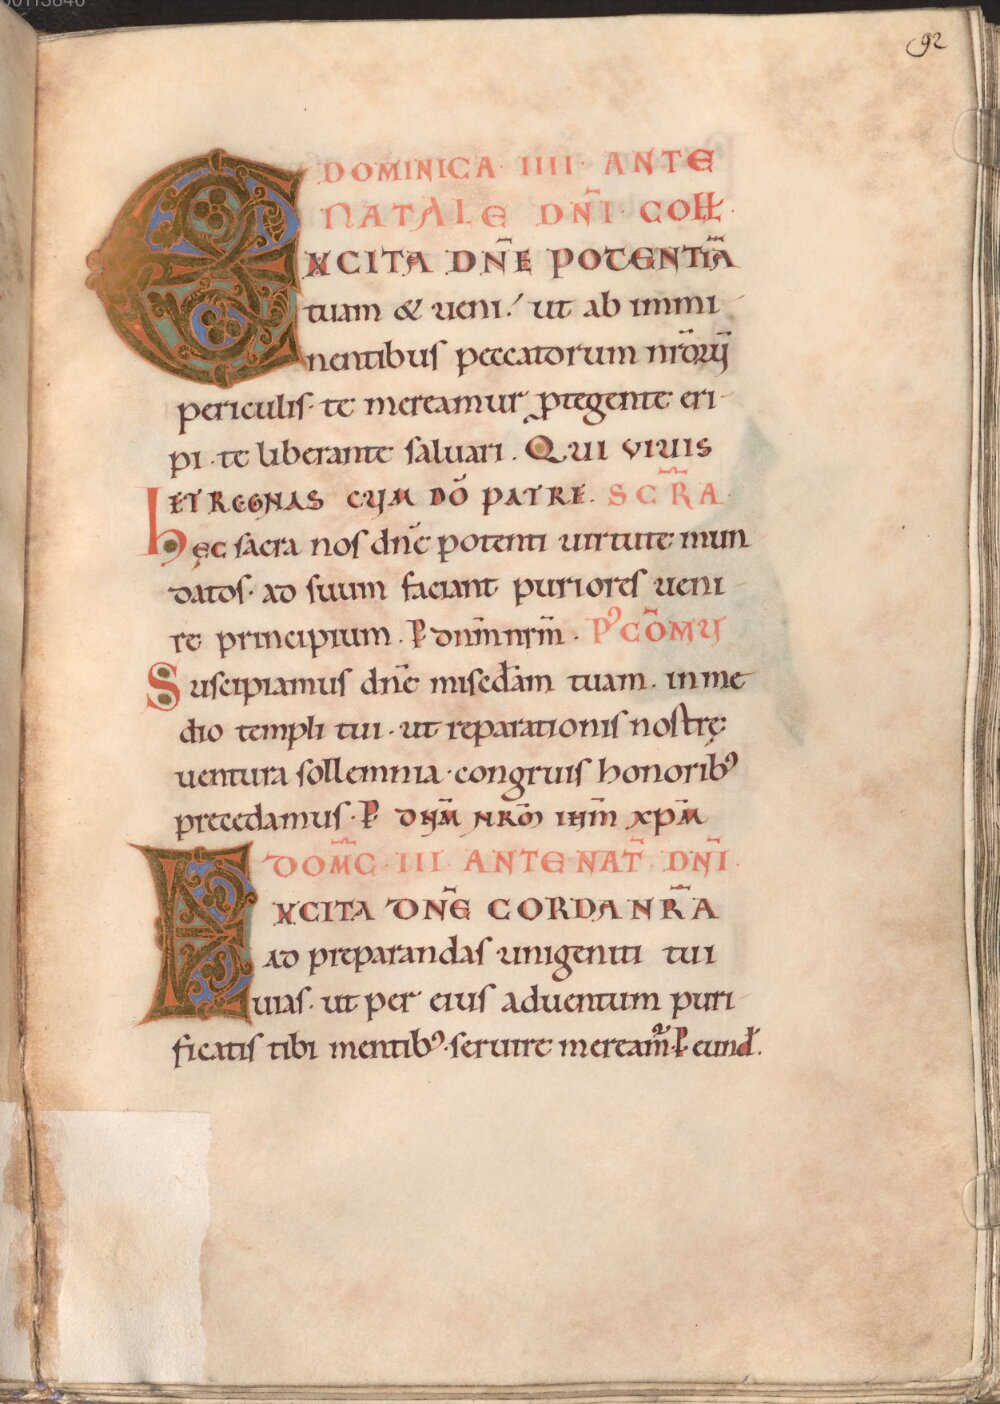 92
DOMINICA · IIII · ANTE
NATALE DN̄I · COLL̵ ·
EXCITA DN̄E POTENTIĀ
tuam & ueni · ut ab immi
nentibus peccatorum nr̄orū
periculis · te mereamur ꝓtegente eri
pi · te liberante saluari . QUI VIUIS
ET REGNAS CUM DŌ PATRE . SEC̄R̄A
hęc sacra nos dn̄e potenti uirtute mun
datos · ad suum faciant puriores ueni
re principium . P̲ dnm̄ nrm̄ . P'CŌMU
Suscipiamus dn̄e misedām tuam . in me
dio templi tui · ut reparationis nostrę
uentura sollemnia · congruis honorib'
precedamus · P̲ DNM̄ NRŌ IHM̄ XPM̄
DOM̄C · III · ANTE NAT̄ . DN̄I ·
EXCITA DN̄E CORDA NR̄A
ad preparandas unigeniti tui
uias · ut per eius aduentum puri
ficatis tibi mentib' · seruire meream̄ · P̲ eund̄ .